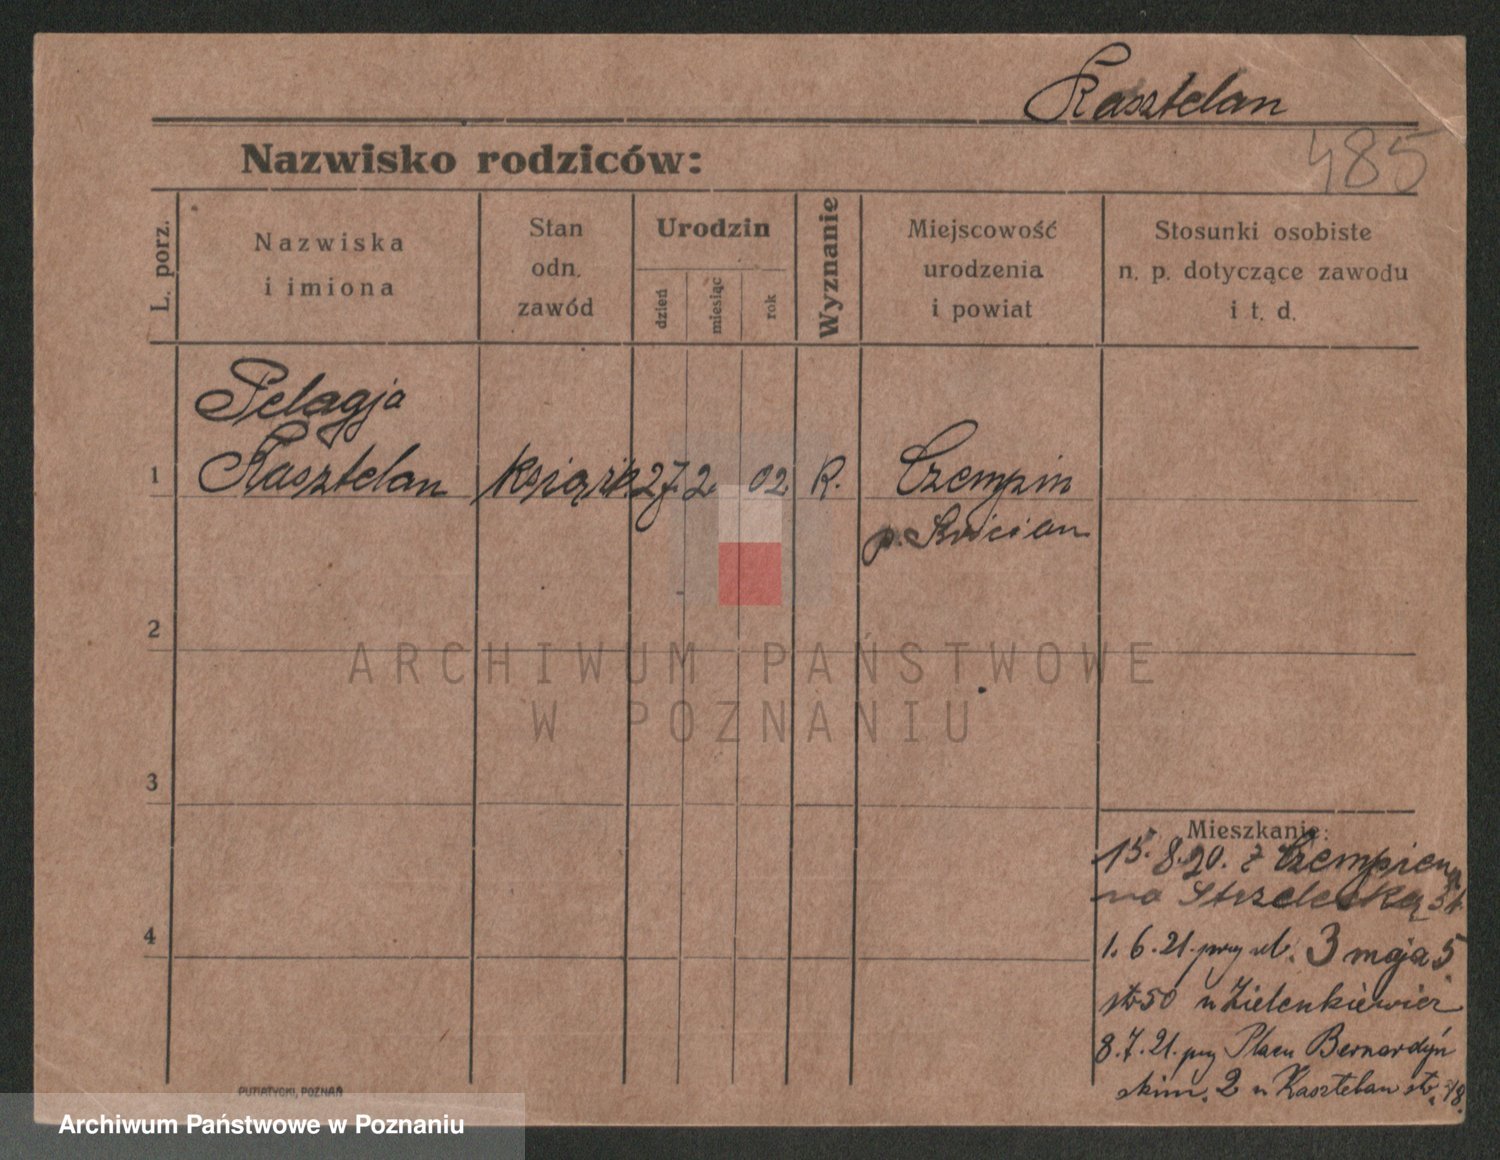 Kasztelan
485
Nazwisko rodziców:
L. porz.
Nazwiska
i imiona
Stan
odn.
zawód
Urodzin
dzień
miesiąc
rok
Wyznanie
Miejscowość
urodzenia
i powiat
Stosunki osobiste
n. p. dotyczące zawodu
i t. d.
Pelagja
1 Kasztelan 27. 2. 02 R. Czempin
p. Kościan
2
ARCHIWUM PAŃSTWOWE
W POZNANIU
3
Mieszkanie:
15.8.20. z Czempienia
na Strzelecką
4
1.6.21. przy ul. 3 maja 5
50 u
8.7.21. przy Placu Bernardyń
skim. 2 u Kasztelan
PUTIATYCKI, POZNAŃ
Archiwum Państwowe w Poznaniu